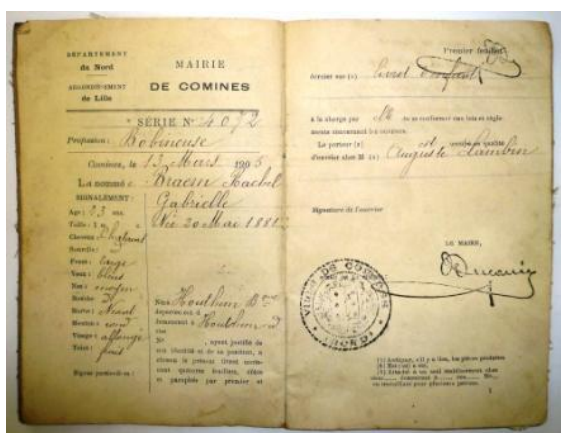 DÉPARTEMENT
du Nord
ARRONDISSEMENT
de Lille
MAIRIE
DE COMINES
SÉRIE N° 4072
Profession : Bobineuse
Comines, le 13 Mars 1905
La nommée Braem Rachel
Gabrielle
Née 20 Mai 1881
SIGNALEMENT :
Age : 23 ans
Taille : 1 m
Cheveux : Chatains
Sourcils :
Front : large
Yeux : bleus
Nez : moyen
Bouche
Menton : rond
Visage : allongé
Teint :
Signes particuliers :
Houthem
demeurant à Houthem
rue
N° , ayant justifié de
son identité et de sa position, a
obtenu le présent livret
quatorze feuillets, côtés
et paraphés par premier et
Premier feuillet
dernier
Livret d'enfant
à la charge par elle de se conformer aux lois et règle-
ments concernant les ouvriers.
Le porteur (2) est
d'ouvrier chez M (3) Auguste Lambin
Signature de l'ouvrier
LE MAIRE,
VILLE DE COMINES
(NORD)
(1) Indiquer, s'il y a lieu, les pièces produites
(2) Est (ou) a été.
(3) Attaché à un seul établissement chez
demeurant à rue N°
ou travaillant pour plusieurs patrons.